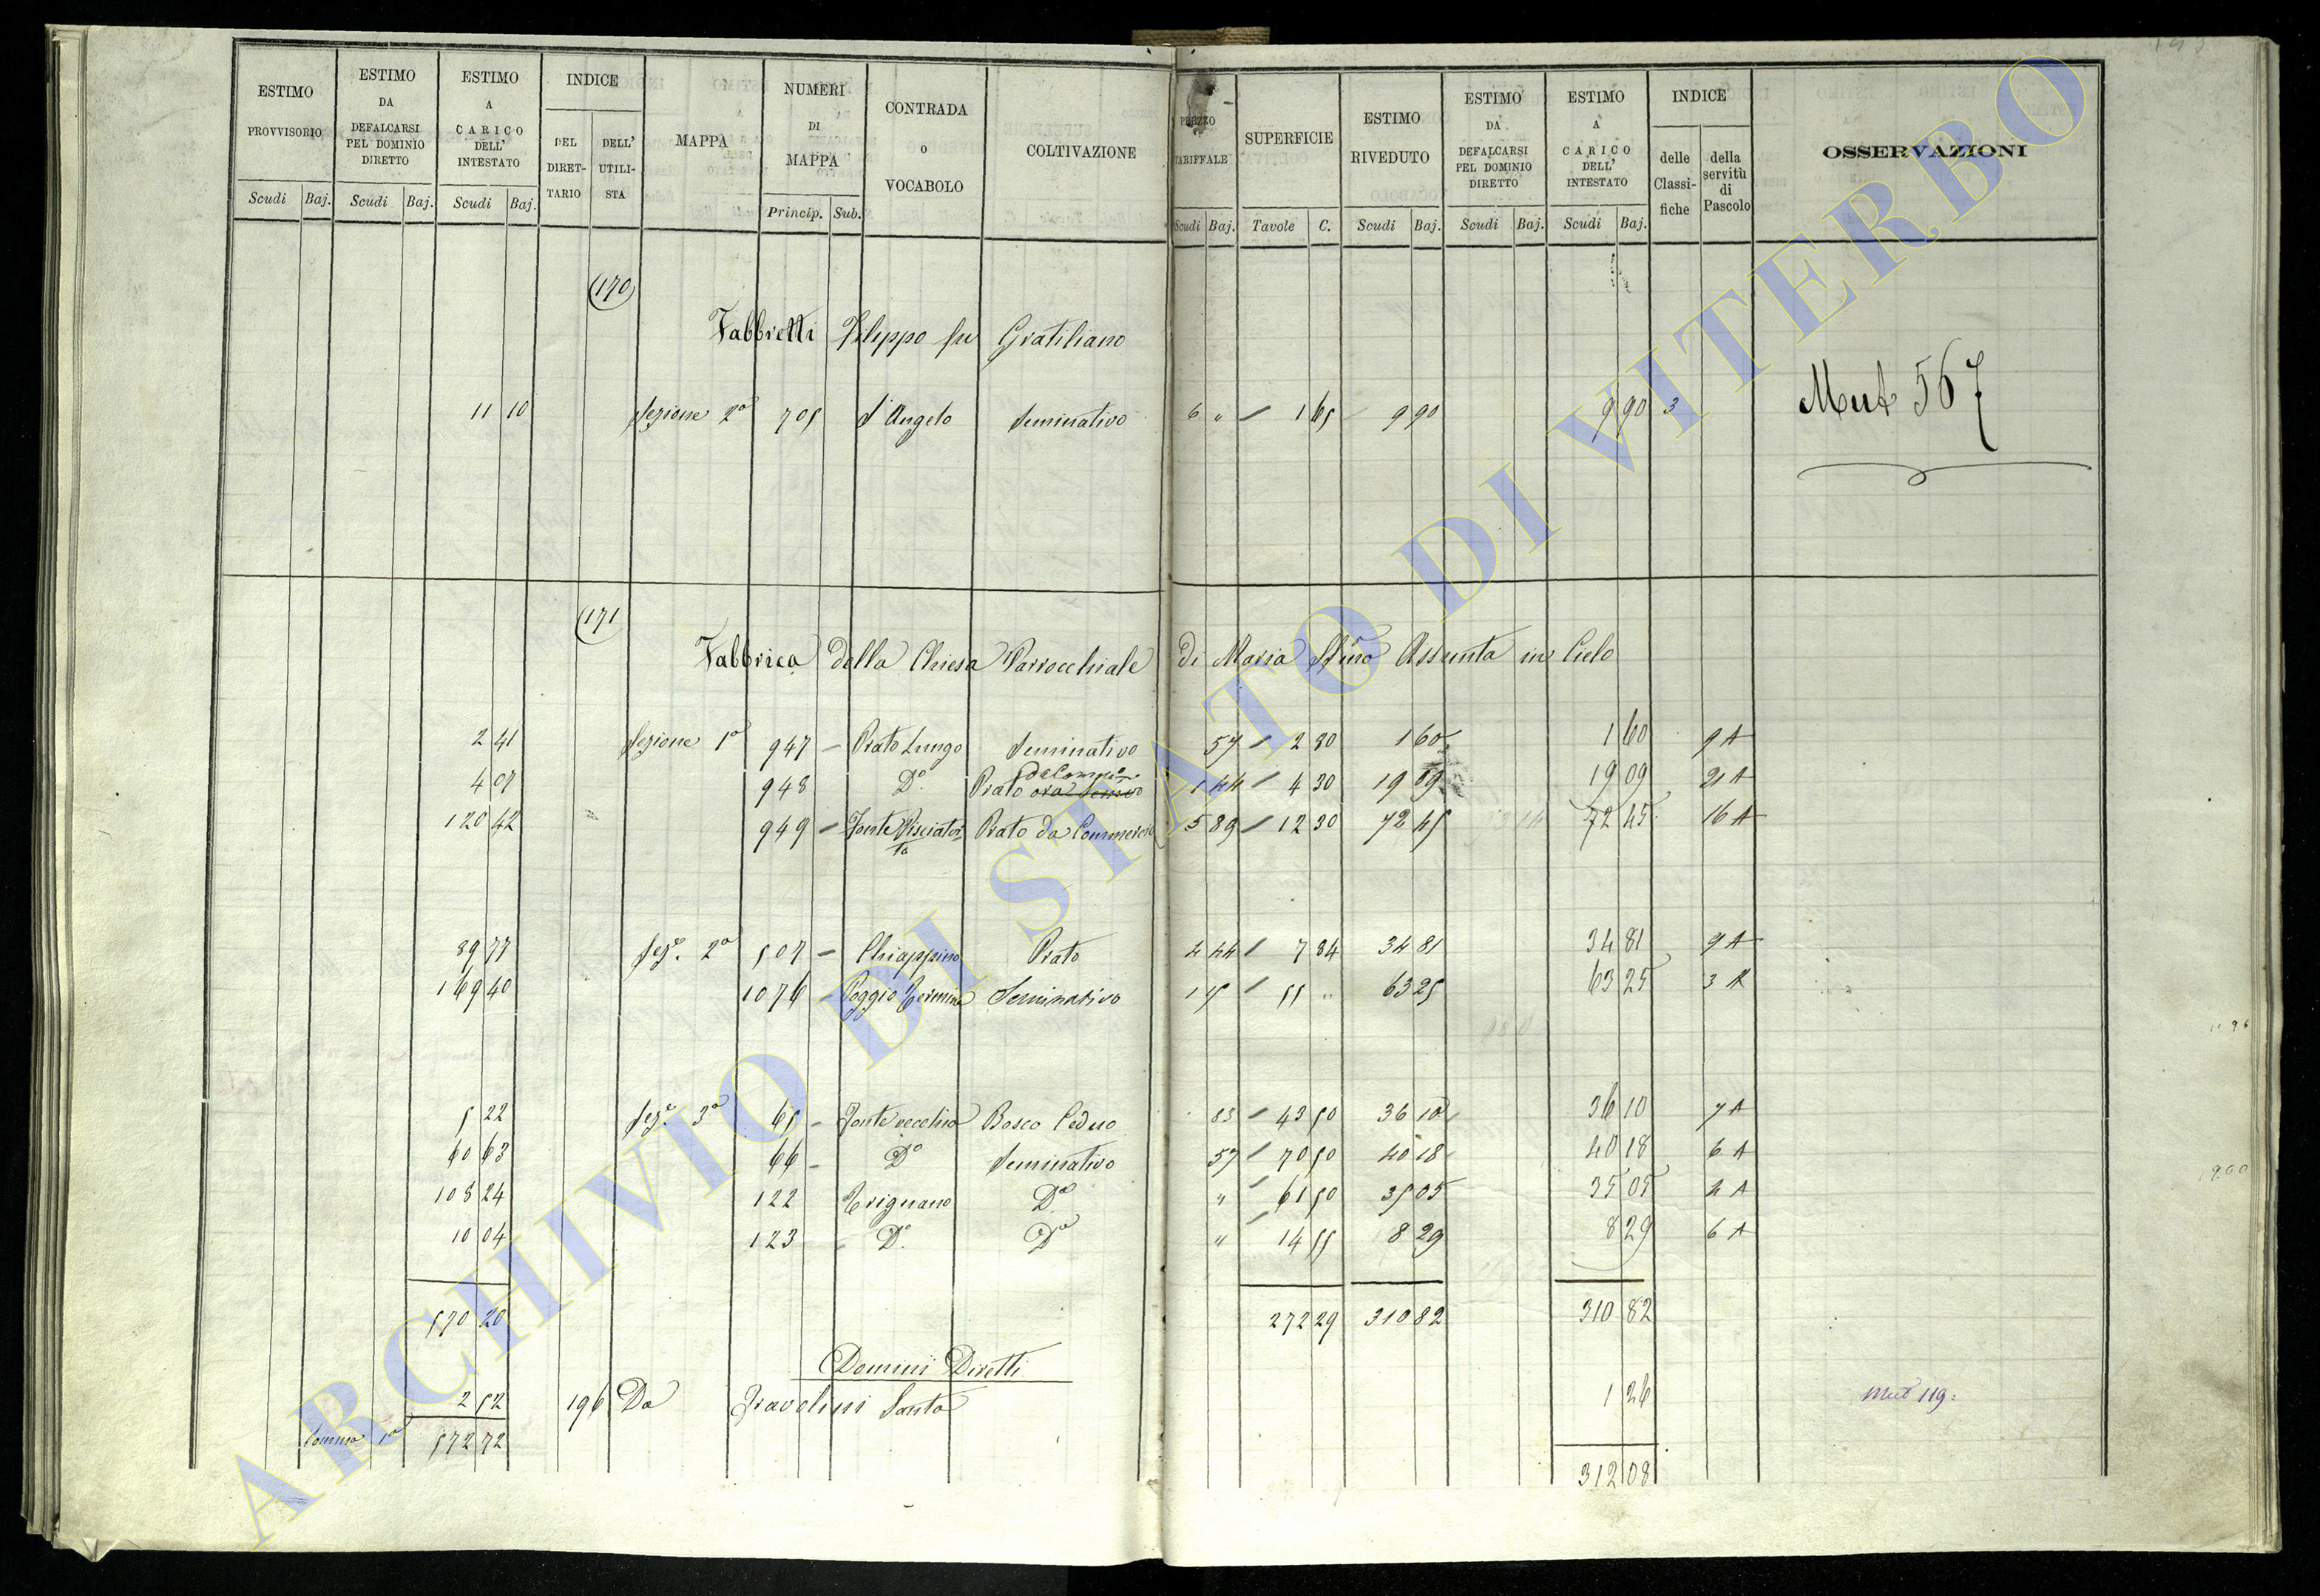 ESTIMO PROVVISORIO ESTIMO DA DEFALCARSI PEL DOMINIO DIRETTO ESTIMO A CARICO DELL' INTESTATO INDICE DEL DIRETTARIO DELL' UTILISTA MAPPA NUMERI DI MAPPA CONTRADA O VOCABOLO COLTIVAZIONE PREZZO TARIFFALE SUPERFICIE ESTIMO RIVEDUTO ESTIMO DA DEFALCARSI PEL DOMINIO DIRETTO ESTIMO A CARICO DELL' INTESTATO INDICE delle Classifiche della servitù di Pascolo OSSERVAZIONI
Scudi Baj. Scudi Baj. Scudi Baj. Princip. Sub. Scudi Baj. Tavole C. Scudi Baj. Scudi Baj. Scudi Baj.
170
Fabbretti Filippo fu Gratiliano
11 10 Sezione 2a 705 S. Angelo Seminativo 6 " 1 65 9 90 9 90 3 Mut 567
171
Fabbrica della Chiesa Parrocchiale di Maria SSma Assunta in Cielo
2 41 Sezione 1a 947 Prato Lungo Seminativo 57 2 80 1 60 1 60 9 A
4 07 948 Do Prato 1 44 4 30 19 09 19 09 21 A
120 42 949 Prato da Commercio 5 89 12 30 72 45 72 45 16 A
39 77 Sez.e 2a 507 Chiappino Prato 4 44 7 84 34 81 34 81 9 A
169 40 1076 Poggio Termine Seminativo 1 15 55 " 63 25 63 25 3 A
5 22 Sez.e 3a 65 Fonte vecchia Bosco Ceduo 83 43 50 36 10 36 10 7 A
60 63 66 Do Seminativo 57 70 50 40 18 40 18 6 A
108 24 122 Trignano Do " 61 50 35 05 35 05 4 A
10 04 123 Do Do " 14 55 8 29 8 29 6 A
570 20 272 29 310 82 310 82
Dominii Diretti
2 52 196 Da Fravolini Santa 1 26 Mut 119
Somma 1a 572 72 312 08
ARCHIVIO DI STATO DI VITERBO